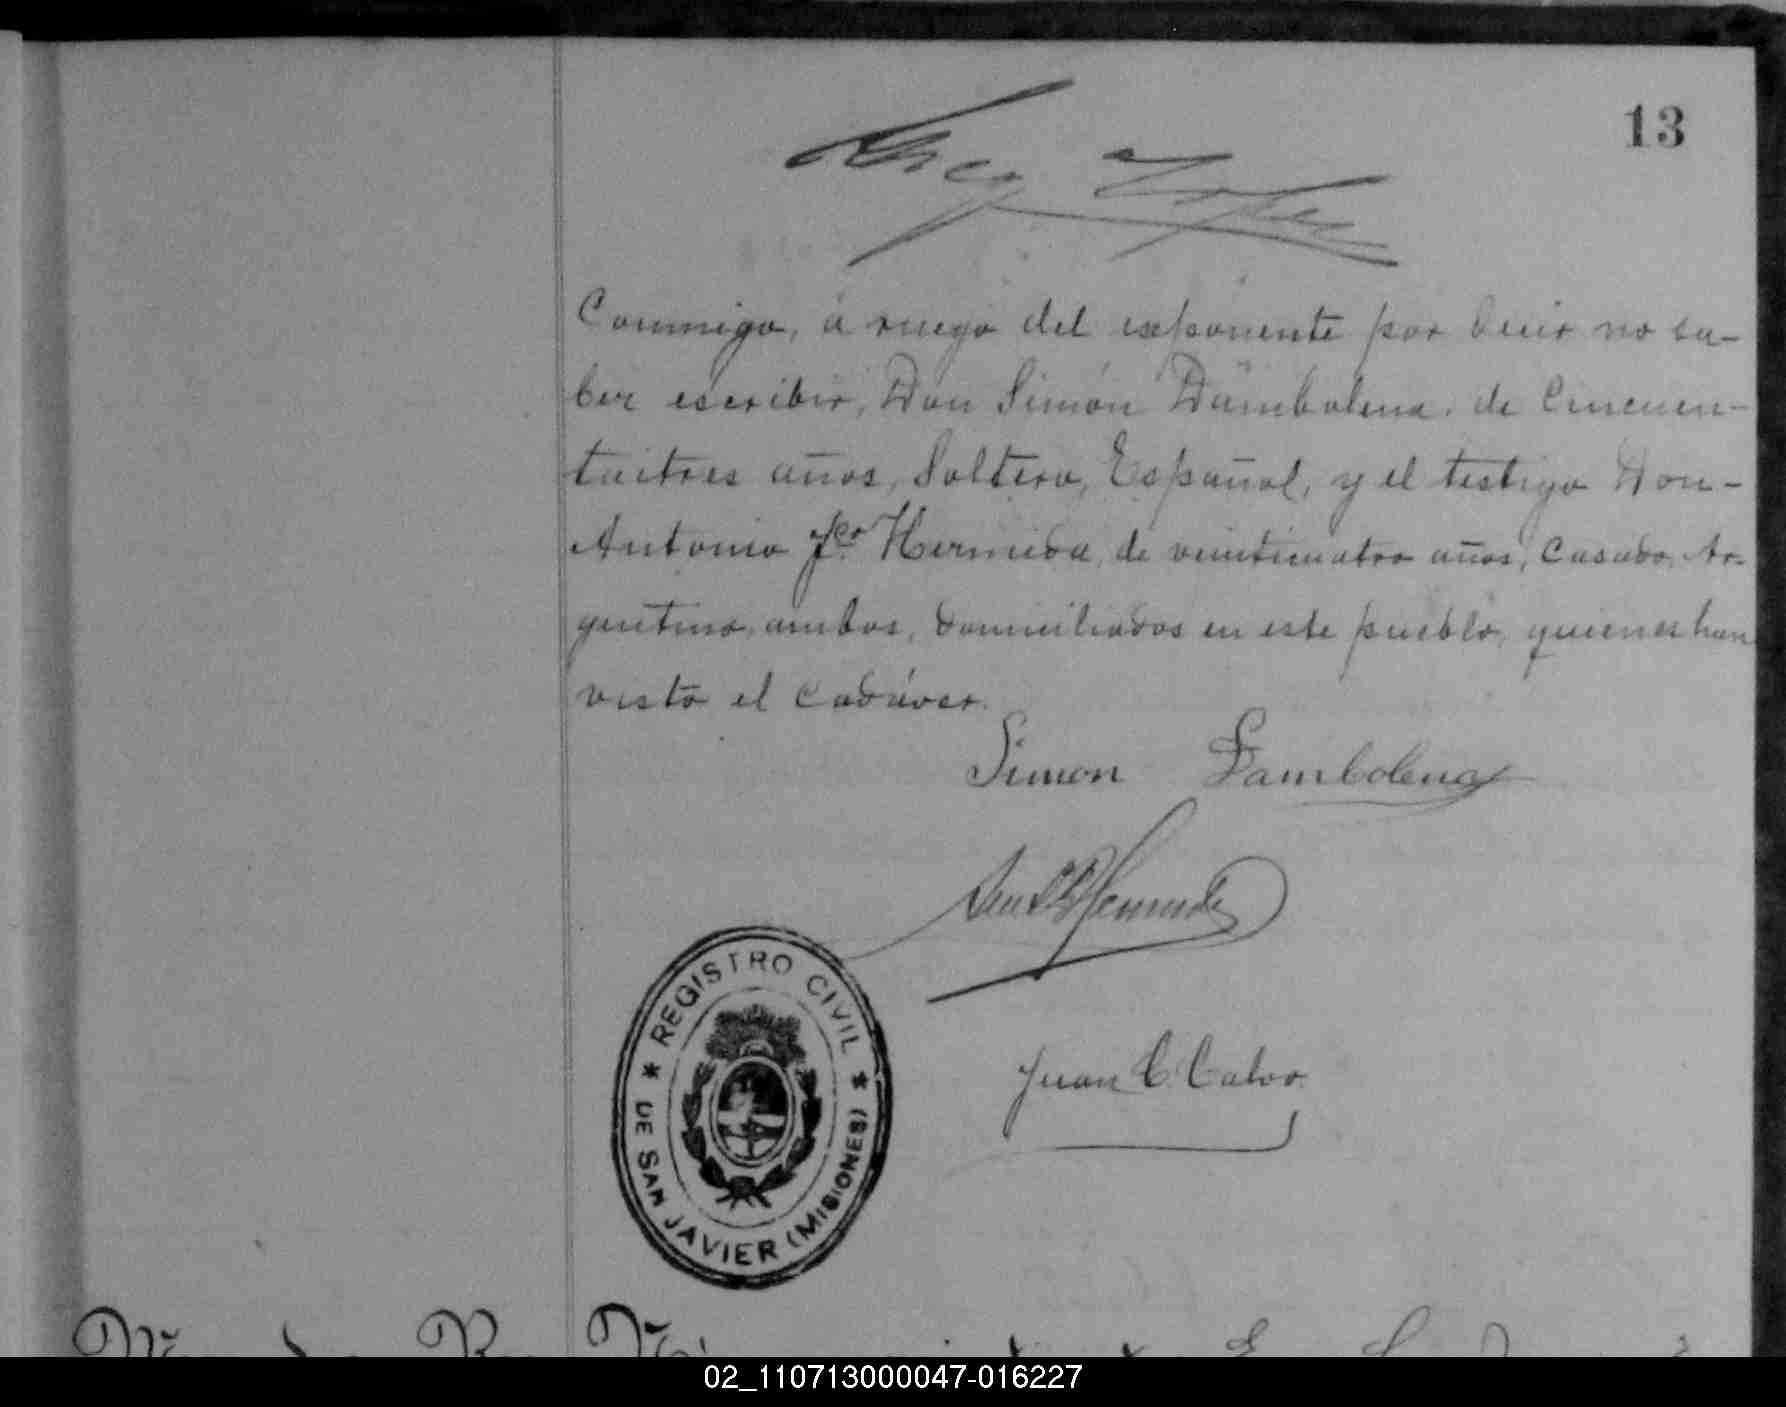 13
Conmigo, á ruego del exponente por decir no sa-
ber escribir, Don Simón Dambolena, de Cincuen-
taitres años, Soltero, Español, y el testigo Don-
Antonio Fco. Hermida, de veinticuatro años, Casado, Ar-
gentino, ambos, domiciliados en este pueblo, quienes han
visto el Cadáver.
Simon Dambolena
Hermida
Juan C. Calvo
* REGISTRO CIVIL *
DE SAN JAVIER (MISIONES)
02_110713000047-016227